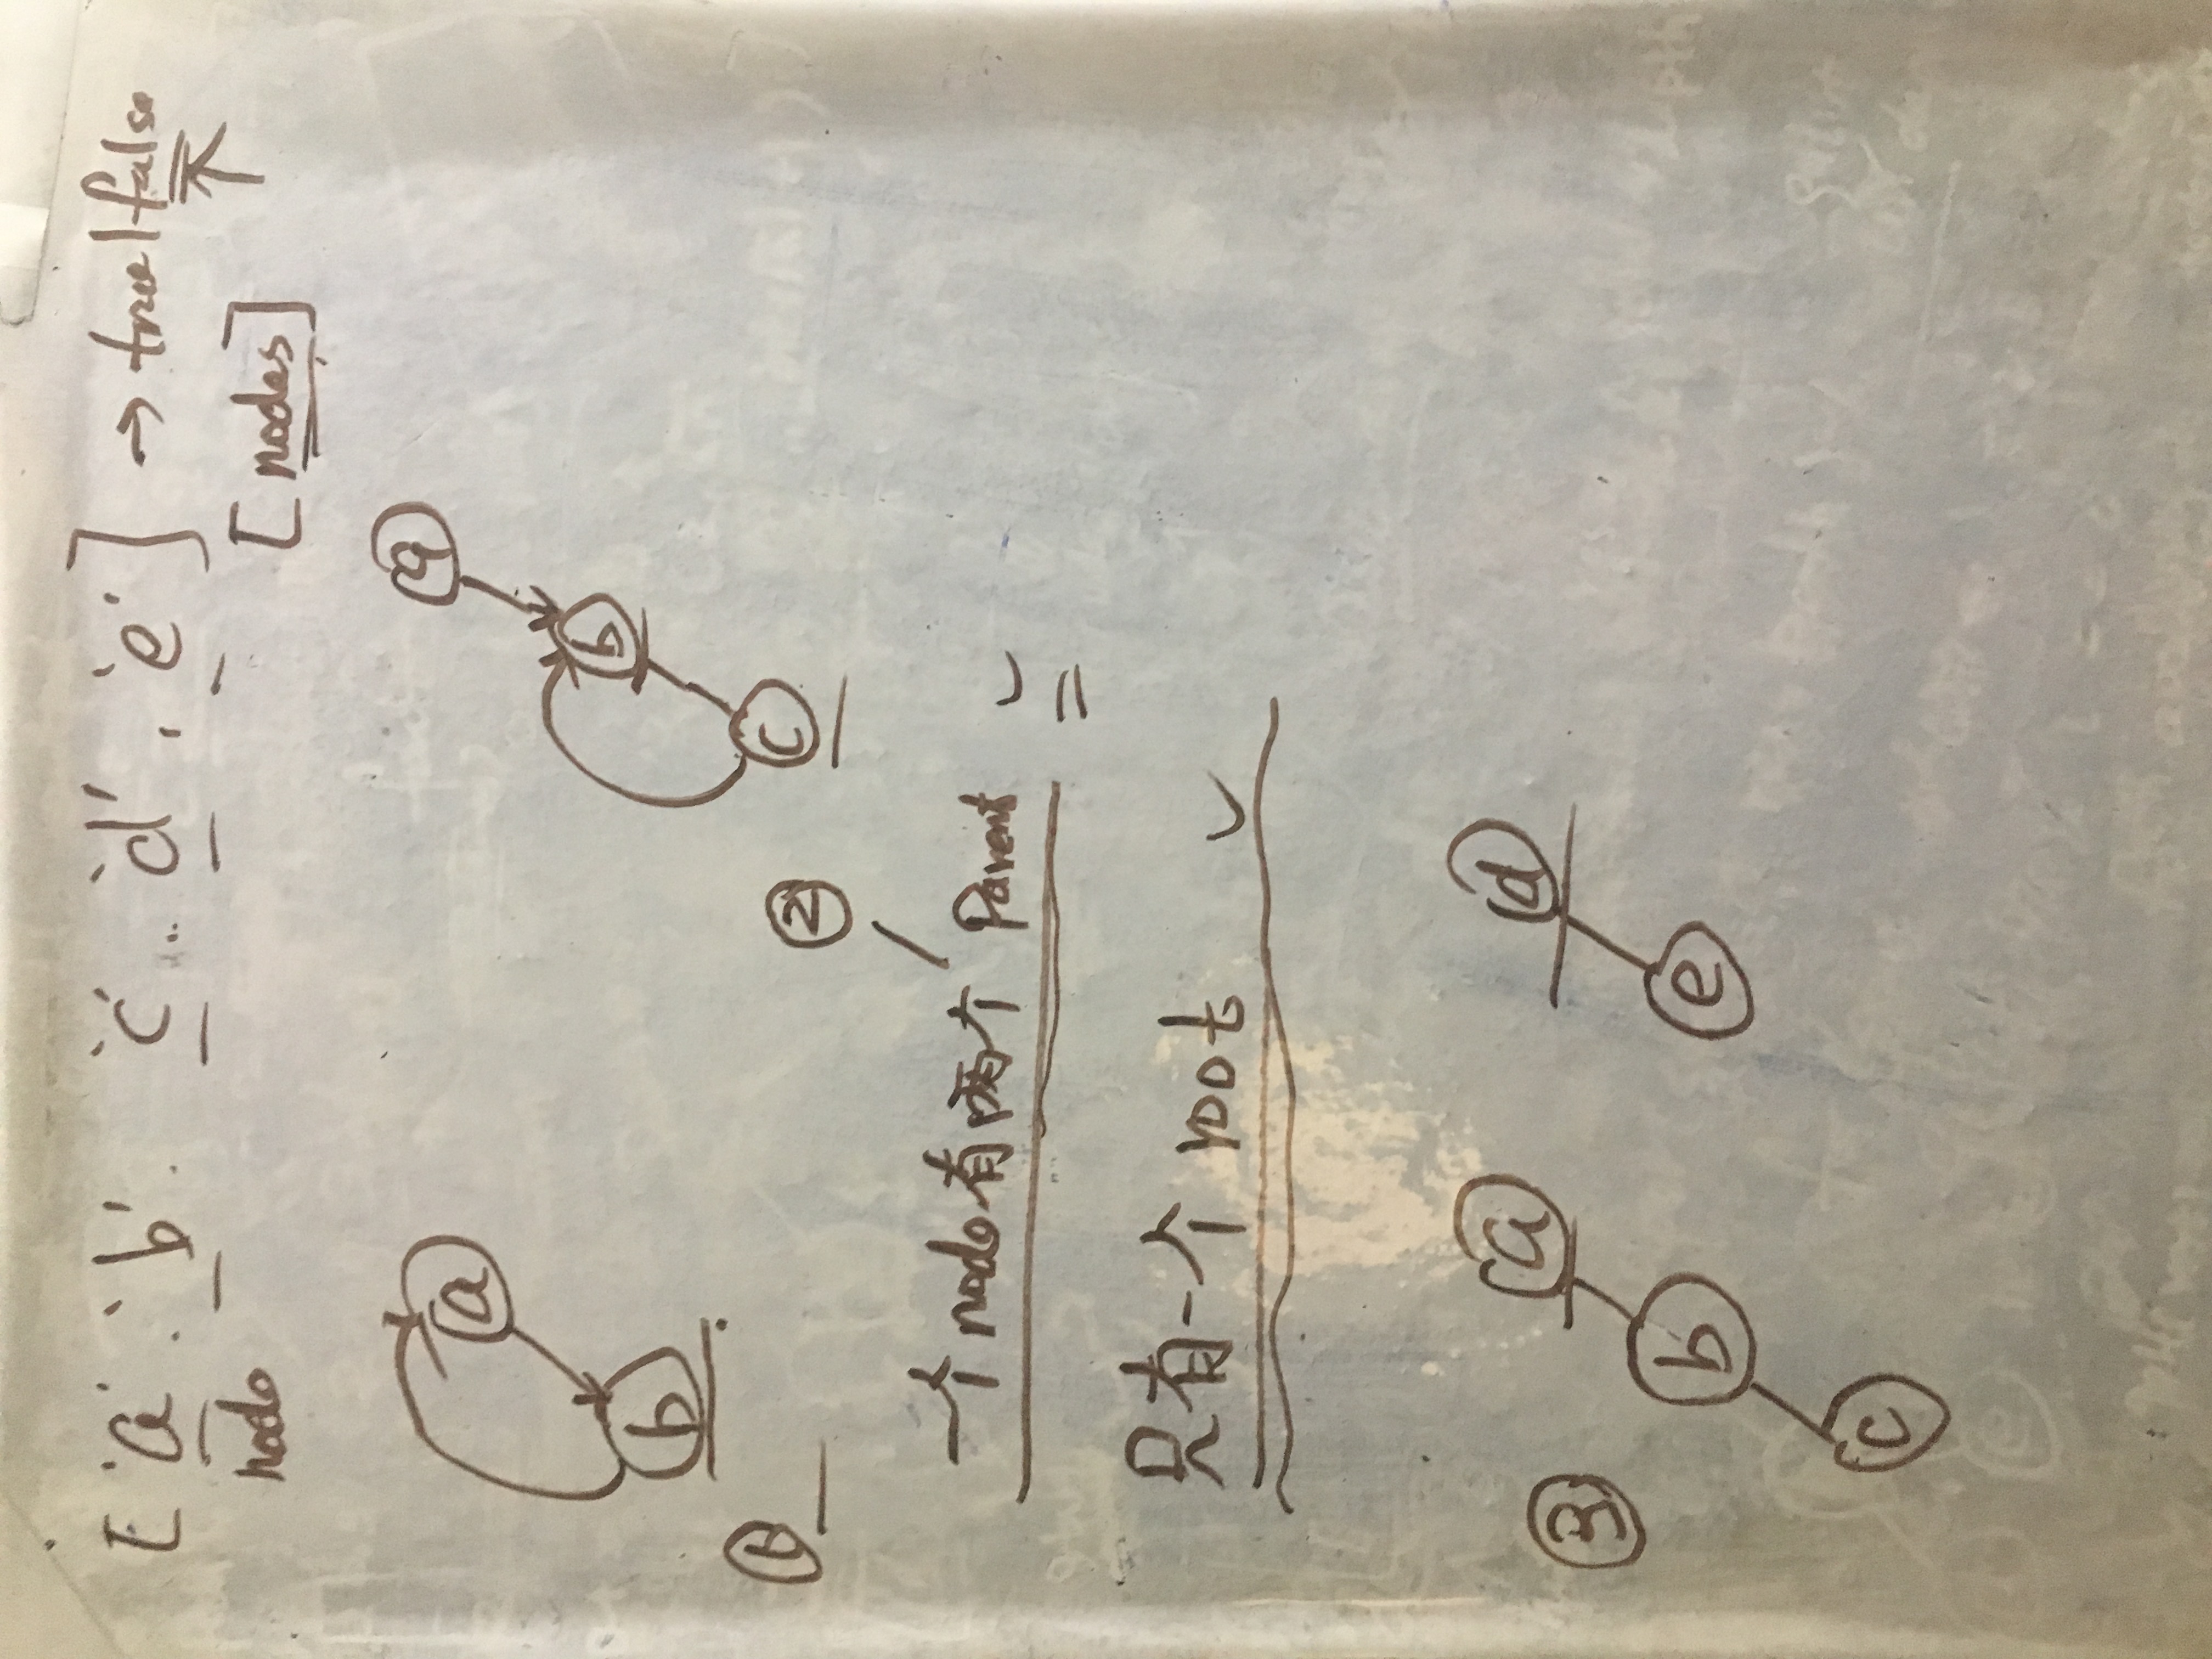 ['a'. 'b'. 'c'.. 'd', 'e'] → true|false
node
[nodes]
a
b
①
a
b
c
②
一个node有两个 Parent
只有一个 root
③
a
b
c
d
e